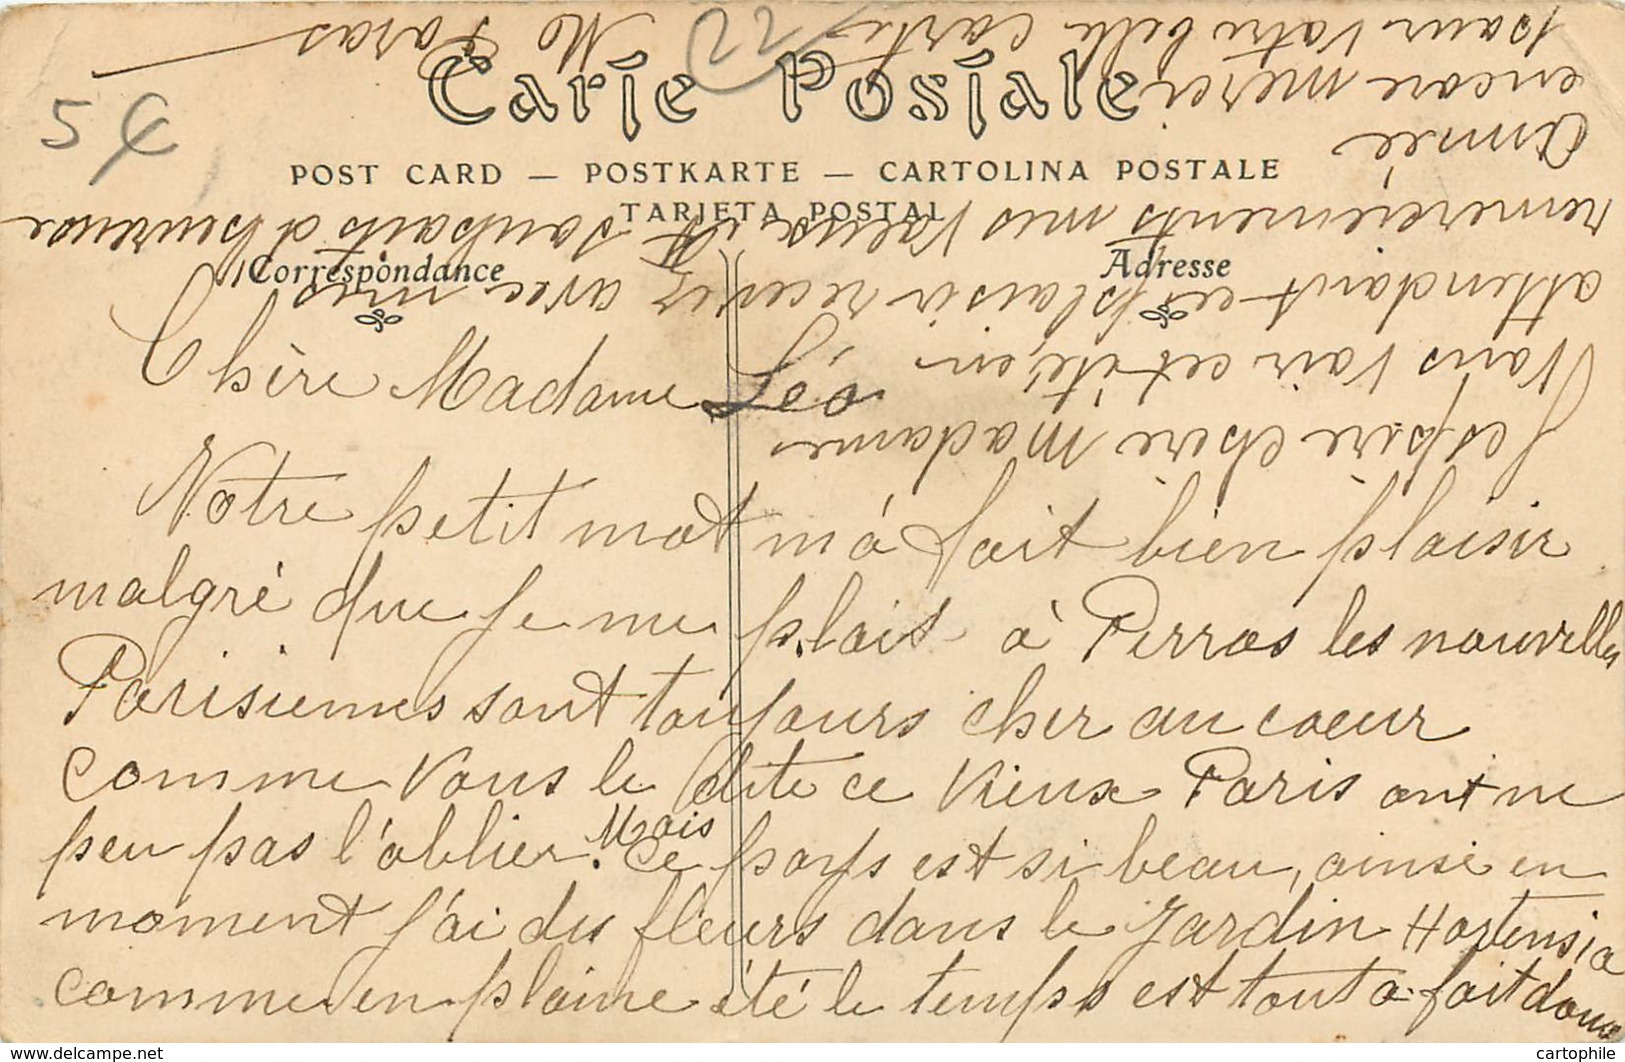 Carte Postale
POST CARD — POSTKARTE — CARTOLINA POSTALE
TARJETA POSTAL
Correspondance
Adresse
54
22
Chère Madame Léo
Votre petit mot m'a fait bien plaisir
malgré que je me plais à Perros les nouvelles
Parisiennes sont toujours cher au coeur
comme vous le dite ce vieux Paris ont ne
peu pas l'oblier. Mais ce pays est si beau, ainsi en
moment j'ai des fleurs dans le jardin Hortensia
comme en plaine été le temps est tout a fait doux
J'espère chere madame
Vous voir cet été, en
attendant ce plaisir recevez avec mes
remerciements mes vœux et souhaits d'heureuse
Année
encore merci
pour votre belle carte